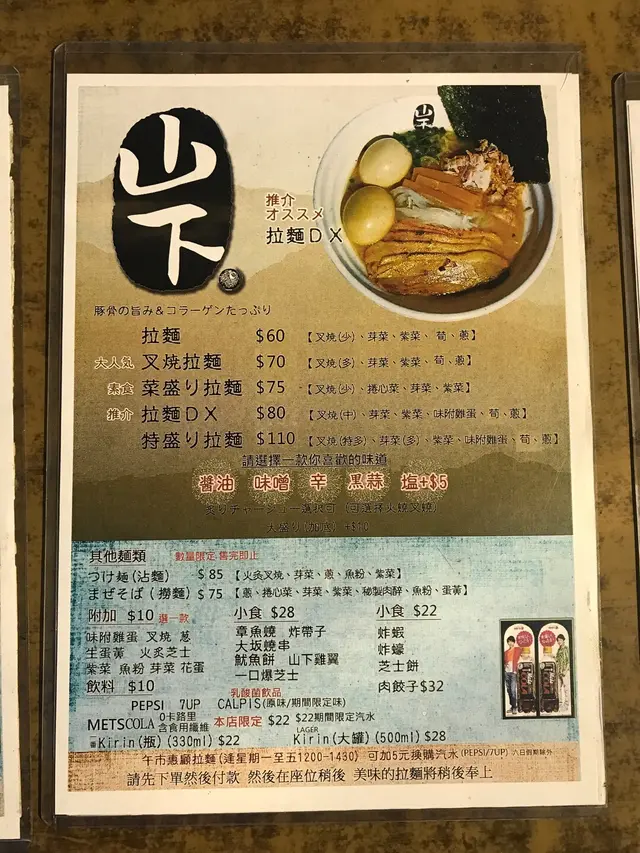 山下
山下
推介
オススメ
拉麵DX
豚骨の旨み&コラーゲンたっぷり
拉麵 $60 【叉燒(少)、芽菜、紫菜、荀、蔥】
大人気 叉焼拉麵 $70 【叉燒(多)、芽菜、紫菜、荀、蔥】
素食 菜盛り拉麵 $75 【叉燒(少)、捲心菜、芽菜、紫菜】
推介 拉麵DX $80 【叉燒(中)、芽菜、紫菜、味附雞蛋、荀、蔥】
特盛り拉麵 $110 【叉燒(特多)、芽菜(多)、紫菜、味附雞蛋、荀、蔥】
請選擇一款你喜歡的味道
醬油 味噌 辛 黒蒜 塩+$5
炙りチャーシュー選択可 (可選擇火燒叉燒)
大盛り(加底) +$10
其他麵類 數量限定 售完即止
つけ麵(沾麵) $85 【火炙叉燒、芽菜、蔥、魚粉、紫菜】
まぜそば(撈麵) $75 【蔥、捲心菜、芽菜、紫菜、秘製肉醉、魚粉、蛋黃】
附加 $10 選一款 小食 $28 小食 $22
味附雞蛋 叉燒 葱 章魚燒 炸帶子 炸蝦
生蛋黃 火炙芝士 大坂燒串 炸蠔
紫菜 魚粉 芽菜 花蛋 魷魚餅 山下雞翼 芝士餅
飲料 $10 一口爆芝士 肉餃子$32
乳酸菌飲品
PEPSI 7UP CALPIS(原味/期間限定味)
METSCOLA 0卡路里 含食用纖維 本店限定 $22 $22期間限定汽水
LAGER
Kirin(瓶)(330ml) $22 Kirin(大罐)(500ml) $28
午市惠顧拉麵(逢星期一至五1200-1430) 可加5元換購汽水(PEPSI/7UP) 六日假期除外
請先下單然後付款 然後在座位稍後 美味的拉麵將稍後奉上